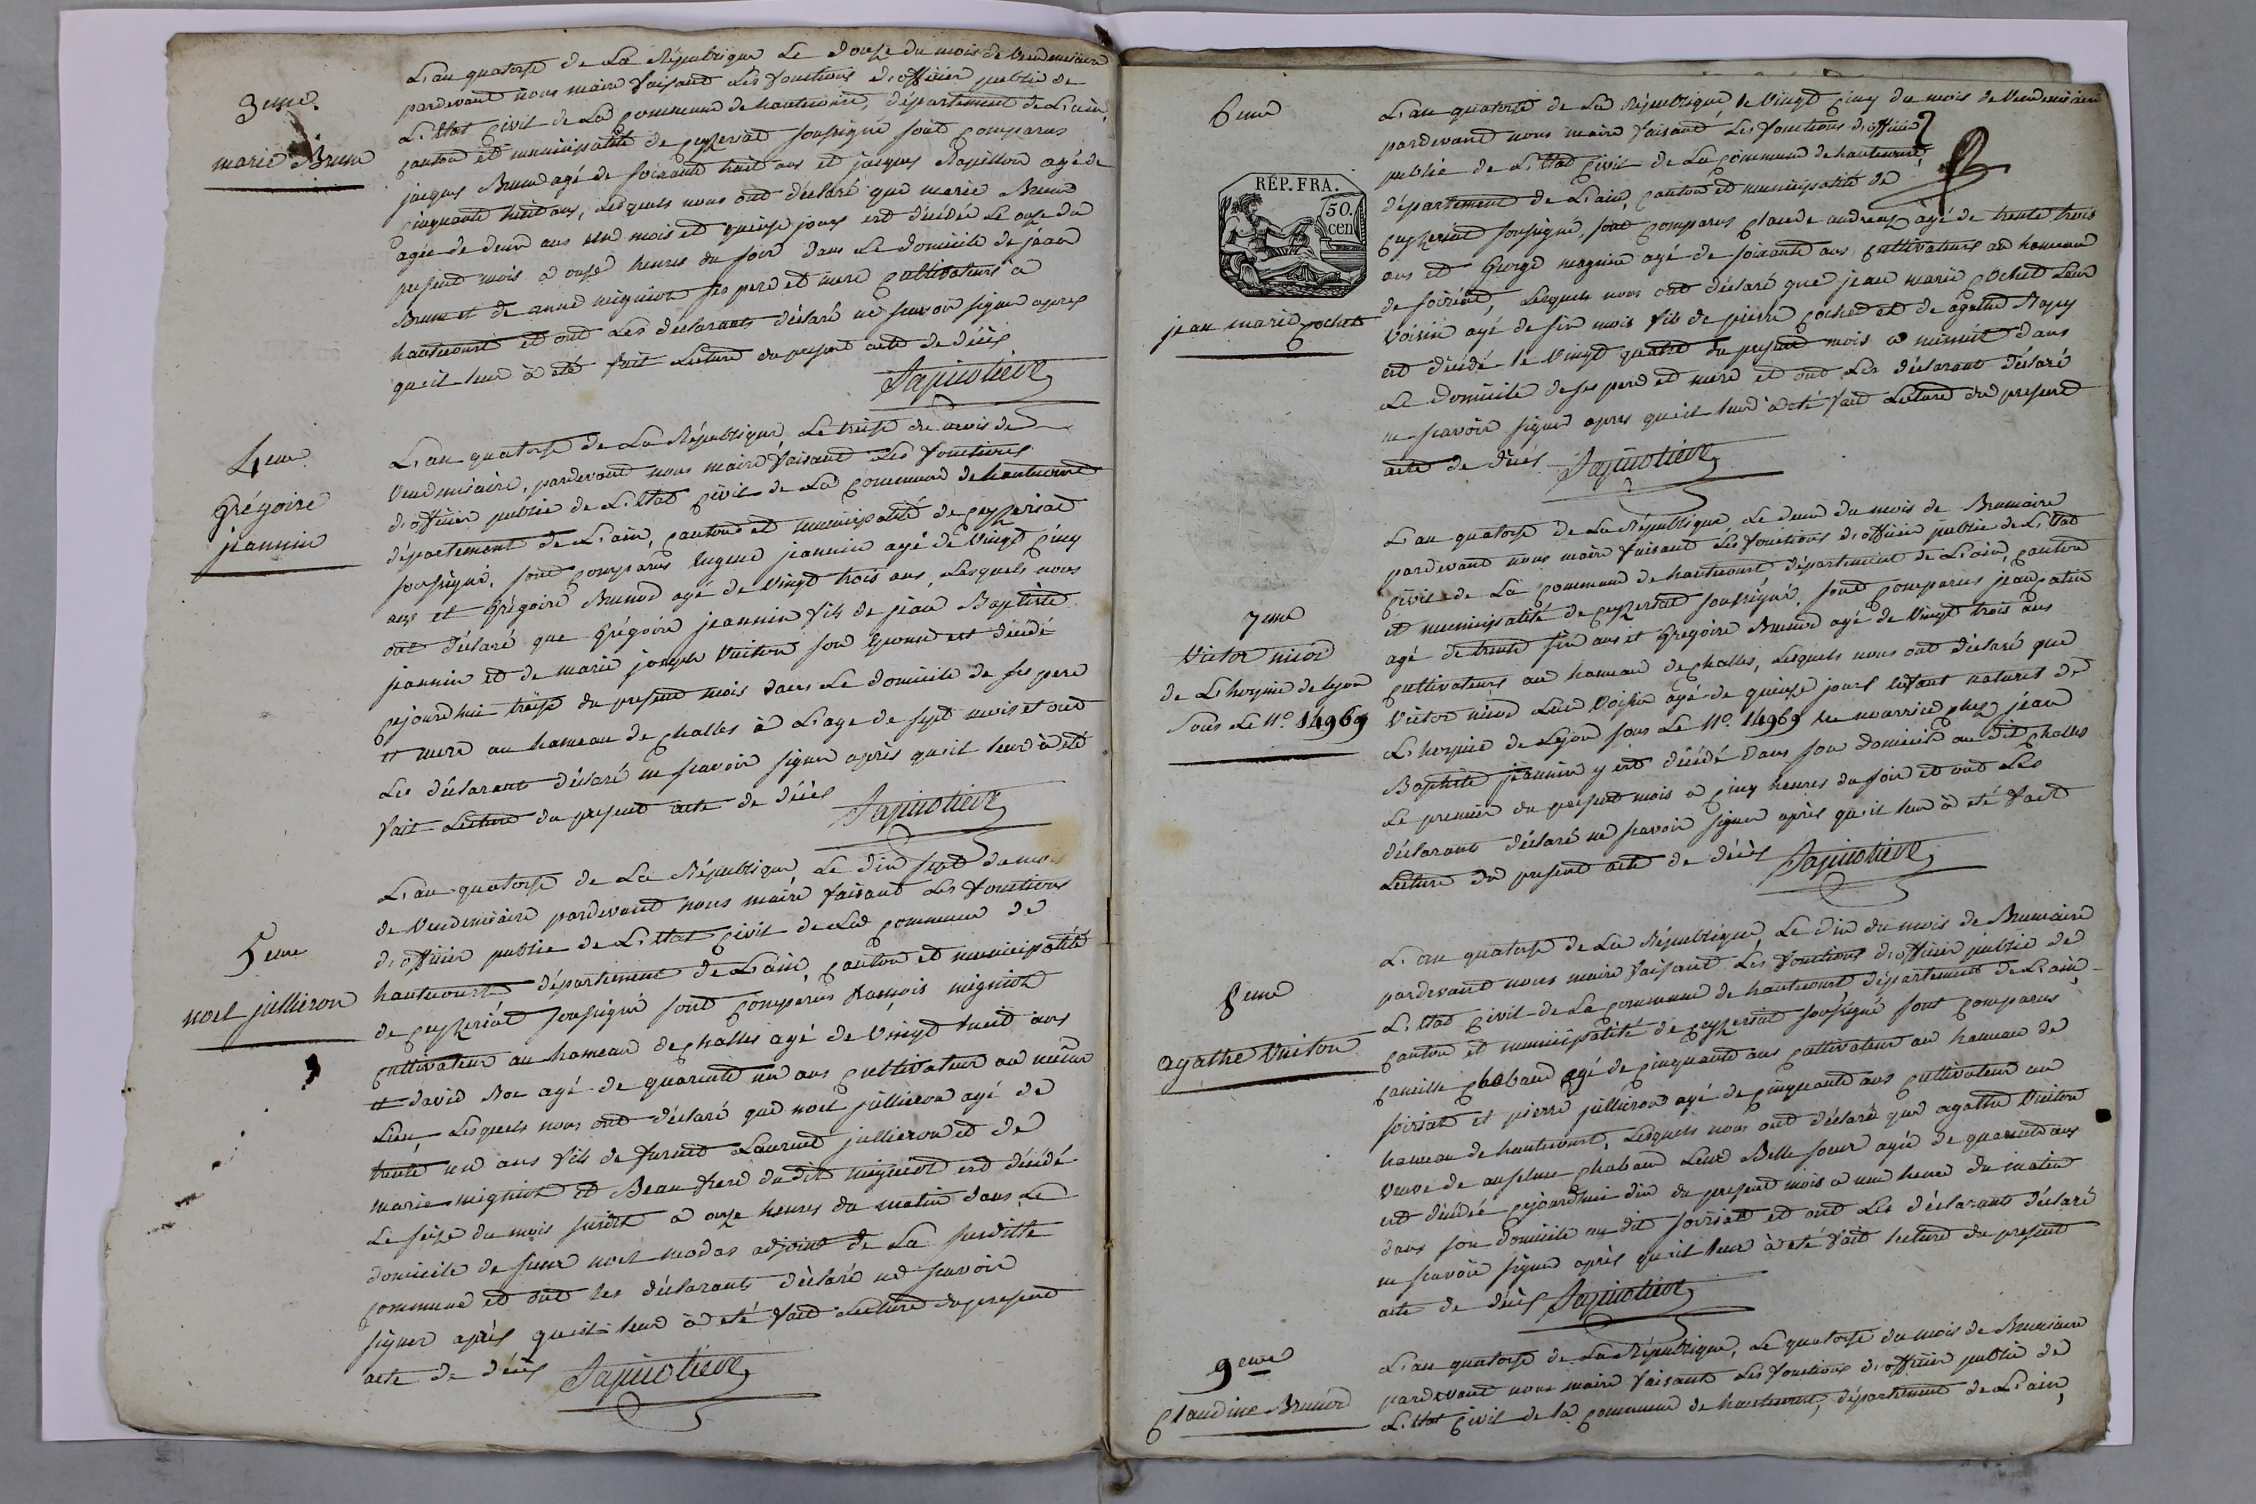 3eme.
marie Brun
L'an quatorze de La République Le douze du mois de Vendemiaire
pardevant nous maire faisant Les fonctions d'officier public de
L'Etat Civil de La Commune de hautecourt, département de L'ain,
Canton et municipalité de Ceyzeriat soussigné sont Comparus
jacques Brun agé de soixante huit ans et jacques Papillon agé de
Cinquante huit ans, Lesquels nous ont déclaré que marie Brun
agée de deux ans un mois et quinze jours est décédée Le onze du
present mois a onze heures du soir dans Le domicile de jean
Brun et de anne migniot ses pere et mere Cultivateurs a
hautecourt et ont Les déclarants déclaré ne scavoir signer apres
qu'il leur à eté fait Lecture du present acte de décès
4eme
Grégoire
jeannin
L'an quatorze de La République, Le treize du mois de
Vendemiaire, pardevant nous maire faisant Les fonctions
d'officier public de L'Etat Civil de La Commune de hautecourt
département de L'ain, Canton et municipalité de Ceyzeriat
soussigné, sont Comparus Eugene jeannin agé de Vingt Cinq
ans et Grégoire Brunod agé de Vingt trois ans, Lesquels nous
ont déclaré que Grégoire jeannin fils de jean Baptiste
jeannin et de marie joseph Vuiton son Epouse est décédé
Cejourdhui treize du present mois dans Le domicile de ses pere
et mere au hameau de Challes à L'age de sept mois et ont
Les déclarant déclaré ne scavoir signer après qu'il leur à eté
fait Lecture du present acte de décès
5eme
noel jullieron
L'an quatorze de La République, Le dix sept du mois
de Vendemiaire pardevant nous maire faisant Les fonctions
d'officier public de L'Etat Civil de La Commune de
hautecourt département de L'ain, Canton et municipalité
de Ceyzeriat soussigné sont Comparus francois migniot
Cultivateur au hameau de Challes agé de Vingt huit ans
et david Roc agé de quarante un ans Cultivateur au même
Lieu, Lesquels nous ont déclaré que noel jullieron agé de
trente un ans fils de furent Laurent jullieron et de
marie migniot et Beau frere du dit migniot est décédé
Le seize du mois susdit a onze heures du matin dans Le
domicile de sieur noel modas adjoint de La susditte
Commune et ont les déclarants déclaré ne scavoir
signer après qu'il leur à eté fait Lecture du present
acte de décès
6eme
RÉP. FRA.
50.
cen
jean marie Cochet
L'an quatorze de La République, le Vingt Cinq du mois de Vendemiaire
pardevant nous maire faisant Les fonctions d'officier
public de L'Etat Civil de La Commune de hautecourt
département de L'ain, Canton et municipalité de
Ceyzeriat soussigné, sont Comparus Claude andreaz agé de trente trois
ans et George magnin agé de soixante ans Cultivateurs au hameau
de soiriat, Lesquels nous ont déclaré que jean marie Cochet Leur
Voisin agé de six mois fils de pierre Cochet et de agathe
est décédé le Vingt quatre du present mois a minuit dans
Le domicile de ses pere et mere et ont Les déclarant déclaré
ne scavoir signer apres qu'il leur à eté fait Lecture du present
acte de décès
7eme
Victor nicod
de L'hospice de lyon
Sous Le N°. 14969
L'an quatorze de La République, Le deux du mois de Brumaire
pardevant nous maire faisant Les fonctions d'officier public de L'Etat
Civil de La Commune de hautecourt département de L'ain, Canton
et municipalité de Ceyzeriat soussigné, sont Comparus jean patin
agé de trente six ans et Grégoire Brunod agé de Vingt trois ans
Cultivateurs au hameau de Challes, Lesquels nous ont déclaré que
Victor nicod Leur Voisin agé de quinze jours Enfant naturel de
L'hospice de Lyon sous Le N°. 14969 en nourrice Chez jean
Baptiste jeannin y est décédé dans son domicile au dit Challes
Le premier du present mois a Cinq heures du soir et ont Les
déclarant déclaré ne scavoir signer après qu'il leur à eté fait
Lecture du present acte de décès
8eme
agathe Vuiton
L'an quatorze de La République, Le dix du mois de Brumaire
pardevant nous maire faisant Les fonctions d'officier public de
L'Etat Civil de La Commune de hautecourt département de L'ain
Canton et municipalité de Ceyzeriat soussigné sont Comparus
Camille Chaband agé de Cinquante ans Cultivateur au hameau de
soiriat et pierre jullieron agé de Cinquante ans Cultivateur au
hameau de hautecourt, Lesquels nous ont déclaré que agathe Vuiton
Veuve de anselme Chaband Leur Belle soeur agée de quarante ans
est décédée Cejourdhui dix du present mois a une heure du matin
dans son domicile au dit soiriat et ont Les déclarants déclaré
ne scavoir signer après qu'il leur à eté fait lecture du present
acte de décès
9eme
Claudine Brunod
L'an quatorze de La République, Le quatorze du mois de Brumaire
pardevant nous maire faisant Les fonctions d'officier public de
L'Etat Civil de la Commune de hautecourt, département de L'ain,